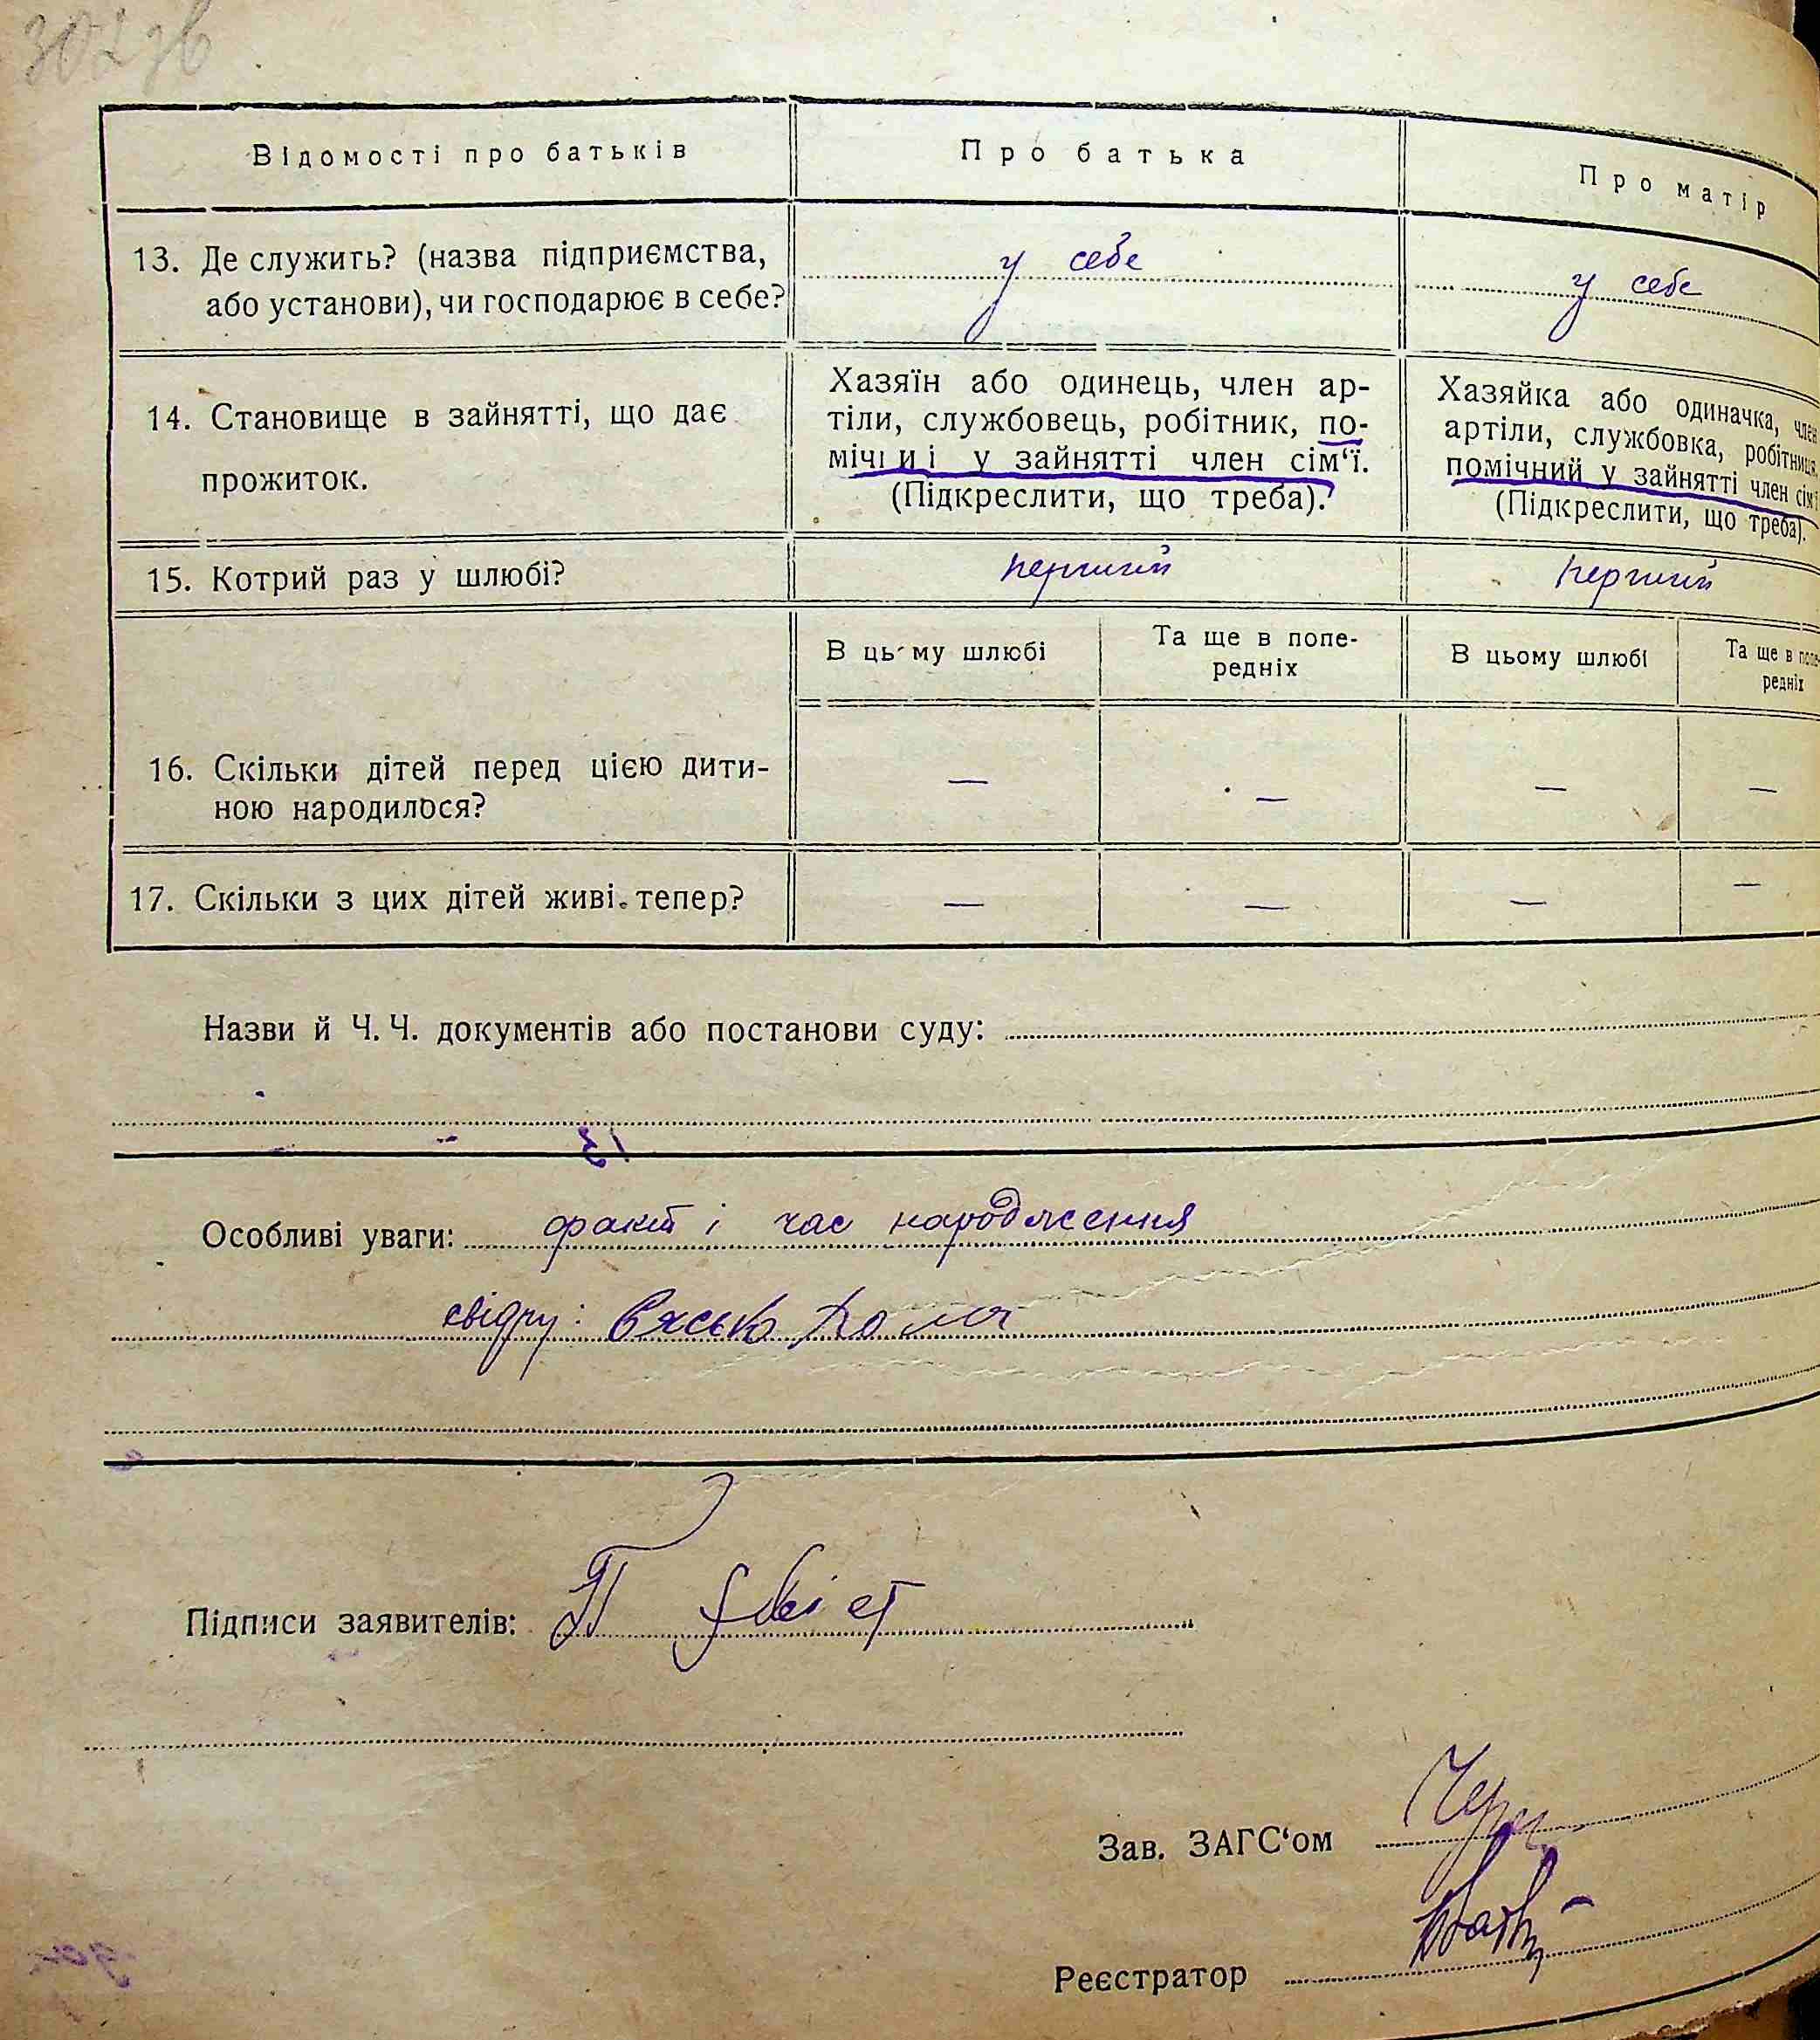 Відомості про батьків
Про батька
Про матір
13. Де служить? (назва підприємства,
або установи), чи господарює в себе?
у себе
у себе
14. Становище в зайнятті, що дає
прожиток.
Хазяїн або одинець, член ар-
тіли, службовець, робітник, по-
мічниі у зайнятті член сім‘ї.
(Підкреслити, що треба).
Хазяйка або одиначка, член
артіли, службовка, робітниця,
помічний у зайнятті член сім‘ї
(Підкреслити, що треба).
15. Котрий раз у шлюбі?
перший
перший
В цьому шлюбі
Та ще в попе-
редніх
В цьому шлюбі
Та ще в попе-
редніх
16. Скільки дітей перед цією дити-
ною народилося?
— — — —
17. Скільки з цих дітей живі тепер?
— — — —
Назви й Ч. Ч. документів або постанови суду:
Особливі уваги: факт і час народження
свідчу:
Підписи заявителів:
Зав. ЗАГС‘ом
Реєстратор